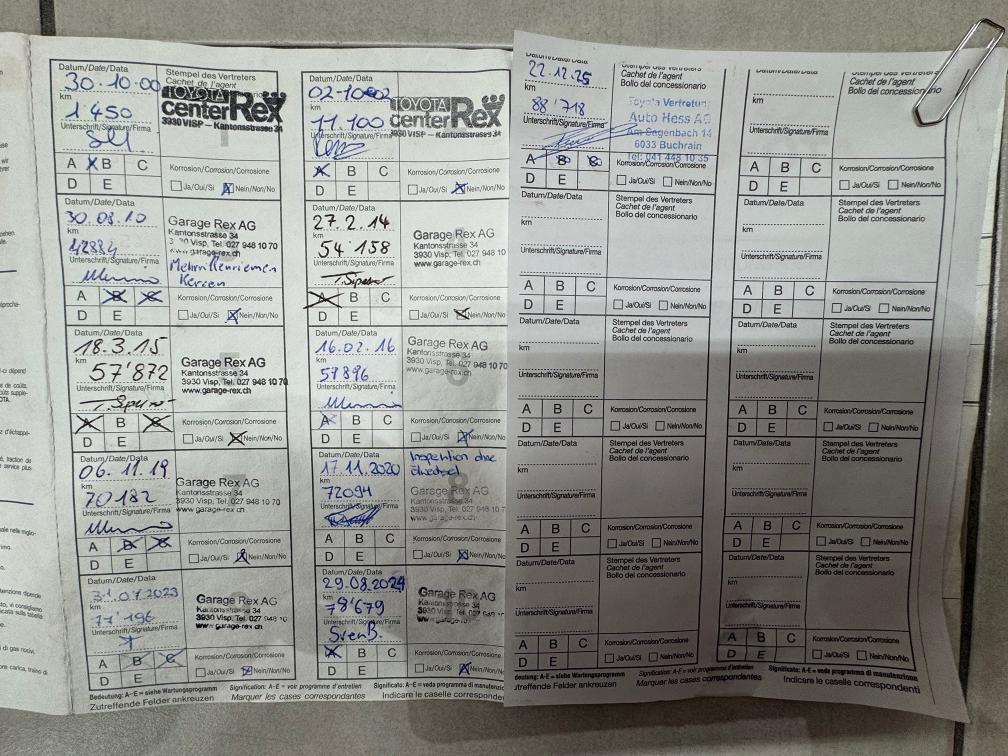 Datum/Date/Data
30.10.00
km
1'450
Unterschrift/Signature/Firma
Stempel des Vertreters
Cachet de l'agent
TOYOTA
centerRex
3930 VISP – Kantonsstrasse 34
A B C
D E
Korrosion/Corrosion/Corrosione
Ja/Oui/Si Nein/Non/No
Datum/Date/Data
02-10-02
km
11.100
Unterschrift/Signature/Firma
TOYOTA
centerRex
3930 VISP – Kantonsstrasse 34
A B C
D E
Korrosion/Corrosion/Corrosione
Ja/Oui/Si Nein/Non/No
Datum/Date/Data
30.08.10
km
42884
Unterschrift/Signature/Firma
Garage Rex AG
Kantonsstrasse 34
Visp, Tel. 027 948 10 70
www.garage-rex.ch
Mehrrillenriemen
Kerzen
A B C
D E
Korrosion/Corrosion/Corrosione
Ja/Oui/Si Nein/Non/No
Datum/Date/Data
27.2.14
km
54'158
Unterschrift/Signature/Firma
Garage Rex AG
Kantonsstrasse 34
3930 Visp, Tel. 027 948 10
www.garage-rex.ch
A B C
D E
Korrosion/Corrosion/Corrosione
Ja/Oui/Si Nein/Non/No
Datum/Date/Data
18.3.15
km
57'872
Unterschrift/Signature/Firma
Garage Rex AG
Kantonsstrasse 34
3930 Visp, Tel. 027 948 10 70
www.garage-rex.ch
A B C
D E
Korrosion/Corrosion/Corrosione
Ja/Oui/Si Nein/Non/No
Datum/Date/Data
16.02.16
km
57896
Unterschrift/Signature/Firma
Garage Rex AG
Kantonsstrasse 34
3930 Visp, Tel. 027 948 10 7
www.garage-rex.ch
A B C
D E
Korrosion/Corrosion/Corrosione
Ja/Oui/Si Nein/Non/No
Datum/Date/Data
06.11.19
km
70182
Unterschrift/Signature/Firma
Garage Rex AG
Kantonsstrasse 34
3930 Visp, Tel. 027 948 10 70
www.garage-rex.ch
A B C
D E
Korrosion/Corrosion/Corrosione
Ja/Oui/Si Nein/Non/No
Datum/Date/Data
17.11.2020
km
72094
Unterschrift/Signature/Firma
Inspention ohne
ölwechsel
8
Garage Rex AG
Kantonsstrasse 34
3930 Visp, Tel. 027 948 10 7
www.garage-rex.ch
A B C
D E
Korrosion/Corrosion/Corrosione
Ja/Oui/Si Nein/Non/No
Datum/Date/Data
31.07.2023
km
77'196
Unterschrift/Signature/Firma
Garage Rex AG
Kantonsstrasse 34
3930 Visp, Tel. 027 948 10 70
www.garage-rex.ch
A B C
D E
Korrosion/Corrosion/Corrosione
Ja/Oui/Si Nein/Non/No
Datum/Date/Data
29.08.2024
km
78'679
Unterschrift/Signature/Firma
Sven B.
Garage Rex AG
Kantonsstrasse 34
3930 Visp, Tel. 027 948
www.garage-rex.ch
A B C
D E
Korrosion/Corrosion/Corrosione
Ja/Oui/Si Nein/Non/No
Bedeutung: A–E = siehe Wartungsprogramm
Zutreffende Felder ankreuzen
Signification: A–E = voir programme d'entretien
Marquer les cases correspondantes
Significato: A–E = veda programma di manutenzion
Indicare le caselle corresponden
Datum/Date/Data
22.12.25
km
88'718
Unterschrift/Signature/Firma
Stempel des Vertreters
Cachet de l'agent
Bollo del concessionario
Toyota Vertretung
Auto Hess AG
Am Sagenbach 14
6033 Buchrain
Tel. 041 448 10 35
A B C
D E
Korrosion/Corrosion/Corrosione
Ja/Oui/Si Nein/Non/No
Datum/Date/Data
km
Unterschrift/Signature/Firma
Stempel des Vertreters
Cachet de l'agent
Bollo del concessionario
A B C
D E
Korrosion/Corrosion/Corrosione
Ja/Oui/Si Nein/Non/No
Datum/Date/Data
km
Unterschrift/Signature/Firma
Stempel des Vertreters
Cachet de l'agent
Bollo del concessionario
A B C
D E
Korrosion/Corrosion/Corrosione
Ja/Oui/Si Nein/Non/No
Datum/Date/Data
km
Unterschrift/Signature/Firma
Stempel des Vertreters
Cachet de l'agent
Bollo del concessionario
A B C
D E
Korrosion/Corrosion/Corrosione
Ja/Oui/Si Nein/Non/No
Datum/Date/Data
km
Unterschrift/Signature/Firma
Stempel des Vertreters
Cachet de l'agent
Bollo del concessionario
A B C
D E
Korrosion/Corrosion/Corrosione
Ja/Oui/Si Nein/Non/No
Datum/Date/Data
km
Unterschrift/Signature/Firma
Stempel des Vertreters
Cachet de l'agent
Bollo del concessionario
A B C
D E
Korrosion/Corrosion/Corrosione
Ja/Oui/Si Nein/Non/No
Datum/Date/Data
km
Unterschrift/Signature/Firma
Stempel des Vertreters
Cachet de l'agent
Bollo del concessionario
A B C
D E
Korrosion/Corrosion/Corrosione
Ja/Oui/Si Nein/Non/No
Datum/Date/Data
km
Unterschrift/Signature/Firma
Stempel des Vertreters
Cachet de l'agent
Bollo del concessionario
A B C
D E
Korrosion/Corrosion/Corrosione
Ja/Oui/Si Nein/Non/No
Datum/Date/Data
km
Unterschrift/Signature/Firma
Stempel des Vertreters
Cachet de l'agent
Bollo del concessionario
A B C
D E
Korrosion/Corrosion/Corrosione
Ja/Oui/Si Nein/Non/No
Datum/Date/Data
km
Unterschrift/Signature/Firma
Stempel des Vertreters
Cachet de l'agent
Bollo del concessionario
A B C
D E
Korrosion/Corrosion/Corrosione
Ja/Oui/Si Nein/Non/No
deutung: A–E = siehe Wartungsprogramm
utreffende Felder ankreuzen
Signification: A–E = voir programme d'entretien
Marquer les cases correspondantes
Significato: A–E = veda programma di manutenzione
Indicare le caselle correspondenti